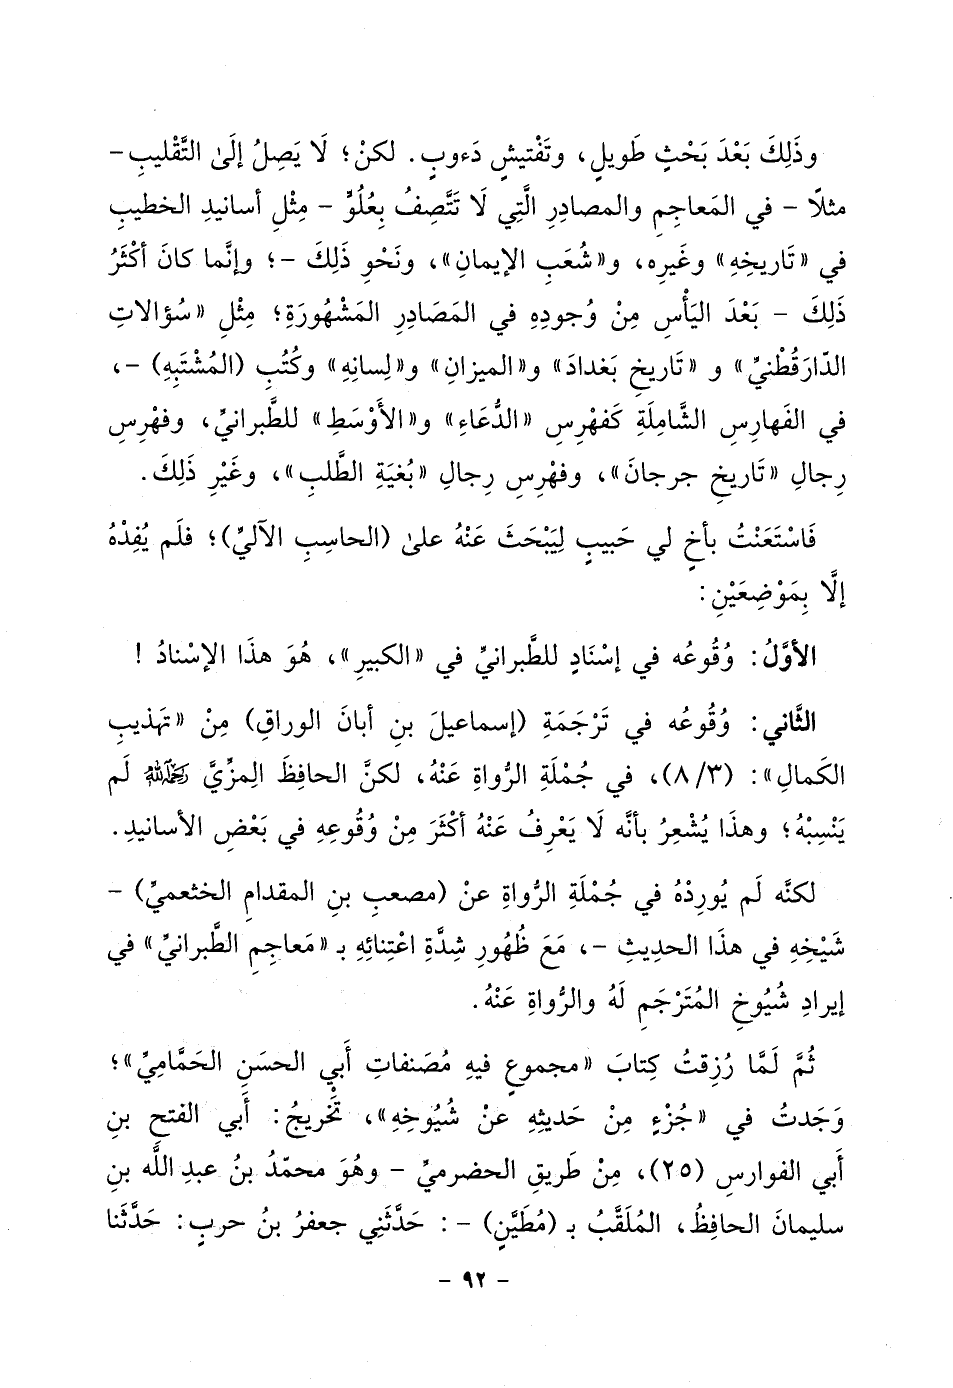 وذَلِكَ بَعْدَ بَحْثٍ طَويلٍ، وتَفْتيشٍ دَءوبٍ. لكنْ؛ لَا يَصِلُ إلَىٰ التَّقْليبِ -
مثلًا - في المَعاجِمِ والمصادِرِ الَّتِي لَا تَتَّصِفُ بِعُلُوٍّ - مِثْلِ أسانيدِ الخطيبِ
في «تَاريخِهِ» وغَيرِه، و«شُعَبِ الإيمانِ»، ونَحْوِ ذَلِكَ -؛ وإنَّما كانَ أكْثَرُ
ذَلِكَ - بَعْدَ اليَأْسِ مِنْ وُجودِهِ في المَصَادِرِ المَشْهُورَةِ؛ مِثْلِ «سُؤالاتِ
الدّارَقُطْنيِّ» و «تَاريخِ بَغدادَ» و«الميزانِ» و«لِسانِهِ» وكُتُبِ (المُشْتَبِهِ) -،
في الفَهارِسِ الشَّامِلَةِ كَفهْرِسِ «الدُّعَاءِ» و«الأَوْسَطِ» للطَّبرانيِّ، وفهْرِسِ
رِجالِ «تَاريخِ جرجانَ»، وفهْرِسِ رِجالِ «بُغيَةِ الطَّلبِ»، وغَيْرِ ذَلِكَ.
فَاسْتَعَنْتُ بأخٍ لي حَبيبٍ لِيَبْحَثَ عَنْهُ علىٰ (الحاسِبِ الآليِّ)؛ فلَم يُفِدْهُ
إلَّا بِمَوْضِعَيْنِ:
الأوَّلُ: وُقُوعُه في إسْنَادٍ للطَّبرانيِّ في «الكبيرِ»، هُوَ هذَا الإسْنادُ !
الثَّاني: وُقُوعُه في تَرْجَمَةِ (إسماعيلَ بنِ أبانَ الوراقِ) مِنْ «تهذيبِ
الكَمالِ»: (٣/ ٨)، في جُمْلَةِ الرُّواةِ عَنْهُ، لكنَّ الحافِظَ المِزِّيَّ رَحِمَهُ اللهُ لَم
يَنْسِبْهُ؛ وهذَا يُشْعِرُ بأنَّه لَا يَعْرِفُ عَنْهُ أكْثَرَ مِنْ وُقُوعِهِ في بَعْضِ الأسانيدِ.
لكنَّه لَم يُورِدْهُ في جُمْلَةِ الرُّواةِ عنْ (مصعبِ بنِ المقدامِ الخثعميِّ) -
شَيْخِهِ في هذَا الحديثِ -، مَعَ ظُهُورِ شِدَّةِ اعْتِنائِهِ بـ «مَعاجِمِ الطَّبرانيِّ» في
إيرادِ شُيُوخِ المُتَرْجَمِ لَهُ والرُّواةِ عَنْهُ.
ثُمَّ لَمَّا رُزِقتُ كِتابَ «مجموعٍ فيهِ مُصَنفاتِ أَبي الحسَنِ الحَمَّاميِّ»؛
وَجَدتُ في «جُزْءٍ مِنْ حَديثِهِ عنْ شُيُوخِهِ»، تَخْريجُ: أَبي الفتحِ بنِ
أَبي الفوارسِ (٢٥)، مِنْ طَريقِ الحضرميِّ - وهُوَ محمّدُ بنُ عبدِ اللَّه بنِ
سليمانَ الحافِظُ، المُلَقَّبُ بـ (مُطَيَّنٍ) -: حَدَّثَنِي جعفرُ بنُ حربٍ: حَدَّثَنا
- ٩٢ -